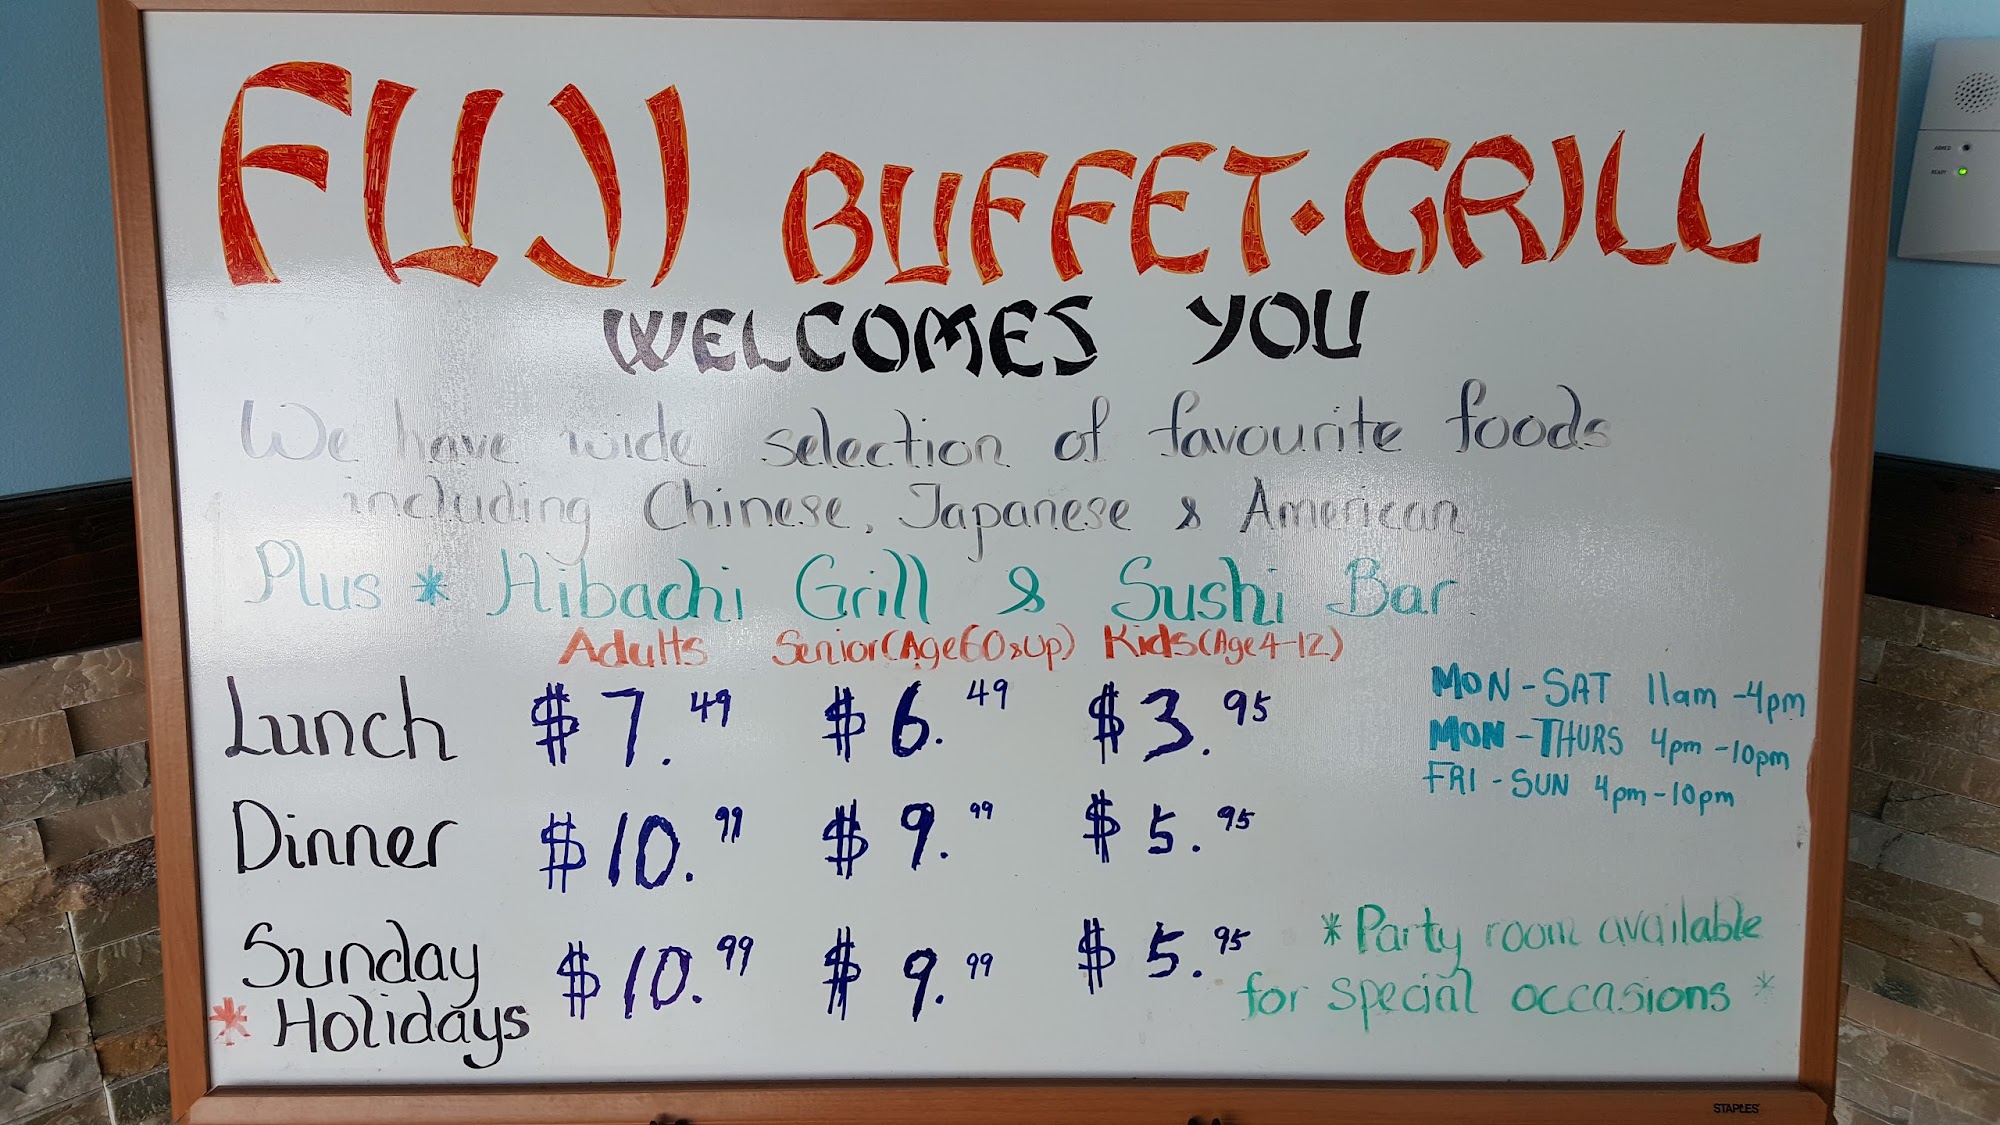 FUJI BUFFET·GRILL
WELCOMES YOU
We have wide selection of favourite foods
including Chinese, Japanese & American
Plus * Hibachi Grill & Sushi Bar
Adults Senior(Age60&Up) Kids(Age4-12)
Lunch $7.49 $6.49 $3.95
MON-SAT 11am-4pm
MON-THURS 4pm-10pm
FRI-SUN 4pm-10pm
Dinner $10.99 $9.99 $5.95
Sunday
* Holidays $10.99 $9.99 $5.95
*Party room available
for special occasions *
STAPLES
ARMED
READY